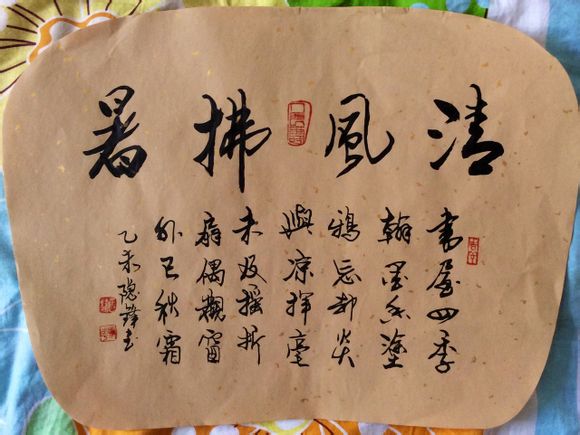 清風拂暑
書屋四季
翰墨香塗
鴉忘却炎
與凉揮毫
未及搖折
扇偶觀窗
外已秋霜
乙未隐鋒书